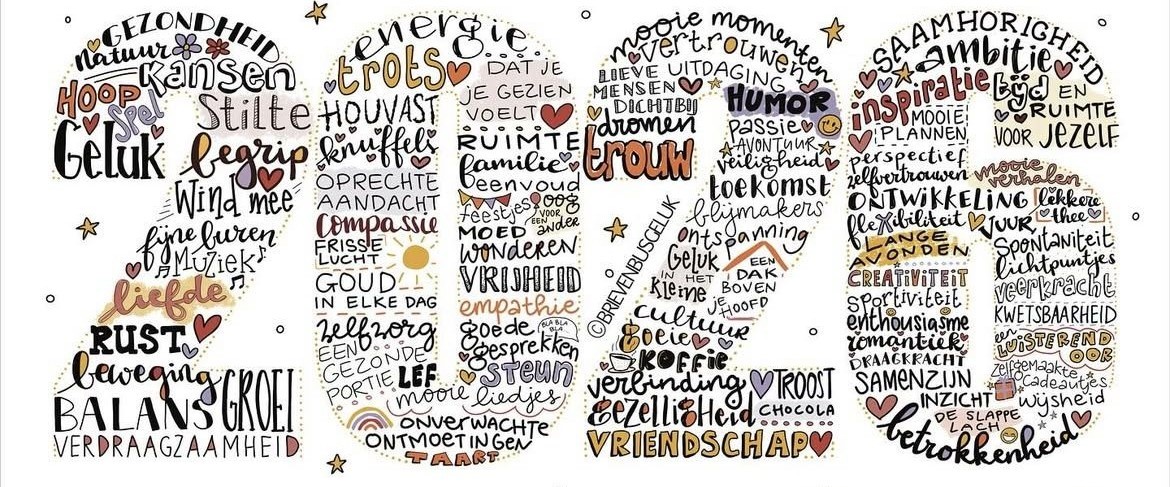 GEZONDHEID
natuur
Kansen
HOOP
Spel
Stilte
Geluk
begrip
Wind mee
fijne buren
Muziek
liefde
RUST
beweging
GROEI
BALANS
VERDRAAGZAAMHEID
energie
trots
DAT JE
JE GEZIEN
VOELT
HOUVAST
knuffels
RUIMTE
familie
OPRECHTE
AANDACHT
eenvoud
feestjes
oog
VOOR
EEN
ander
compassie
MOED
FRISSE
LUCHT
wonderen
GOUD
IN ELKE DAG
VRIJHEID
empathie
zelfzorg
goede
gesprekken
BLA BLA
BLA
EEN
GEZONDE
PORTIE
LEF
steun
mooie liedjes
ONVERWACHTE
ONTMOETINGEN
TAART
mooie momenten
vertrouwen
LIEVE
MENSEN
DICHTBIJ
UITDAGING
HUMOR
dromen
passie
AVONTUUR
trouw
veiligheid
toekomst
blijmakers
ontspanning
GELUK
IN HET
kleine
EEN
DAK
BOVEN
JE
HOOFD
©BRIEVENBUSGELUK
cultuur
goeie
KOFFIE
verbinding
TROOST
gezelligheid
CHOCOLA
VRIENDSCHAP
SAAMHORIGHEID
ambitie
inspiratie
tijd EN
RUIMTE
VOOR JEZELF
MOOIE
PLANNEN
perspectief
zelfvertrouwen
mooie
verhalen
ONTWIKKELING
lekkere
thee
flexibiliteit
VUUR
LANGE
AVONDEN
Spontaniteit
lichtpuntjes
CREATIVITEIT
veerkracht
sportiviteit
KWETSBAARHEID
enthousiasme
romantiek
een
LUISTEREND
OOR
DRAAGKRACHT
SAMENZIJN
zelfgemaakte
cadeautjes
INZICHT
wijsheid
DE SLAPPE
LACH
betrokkenheid